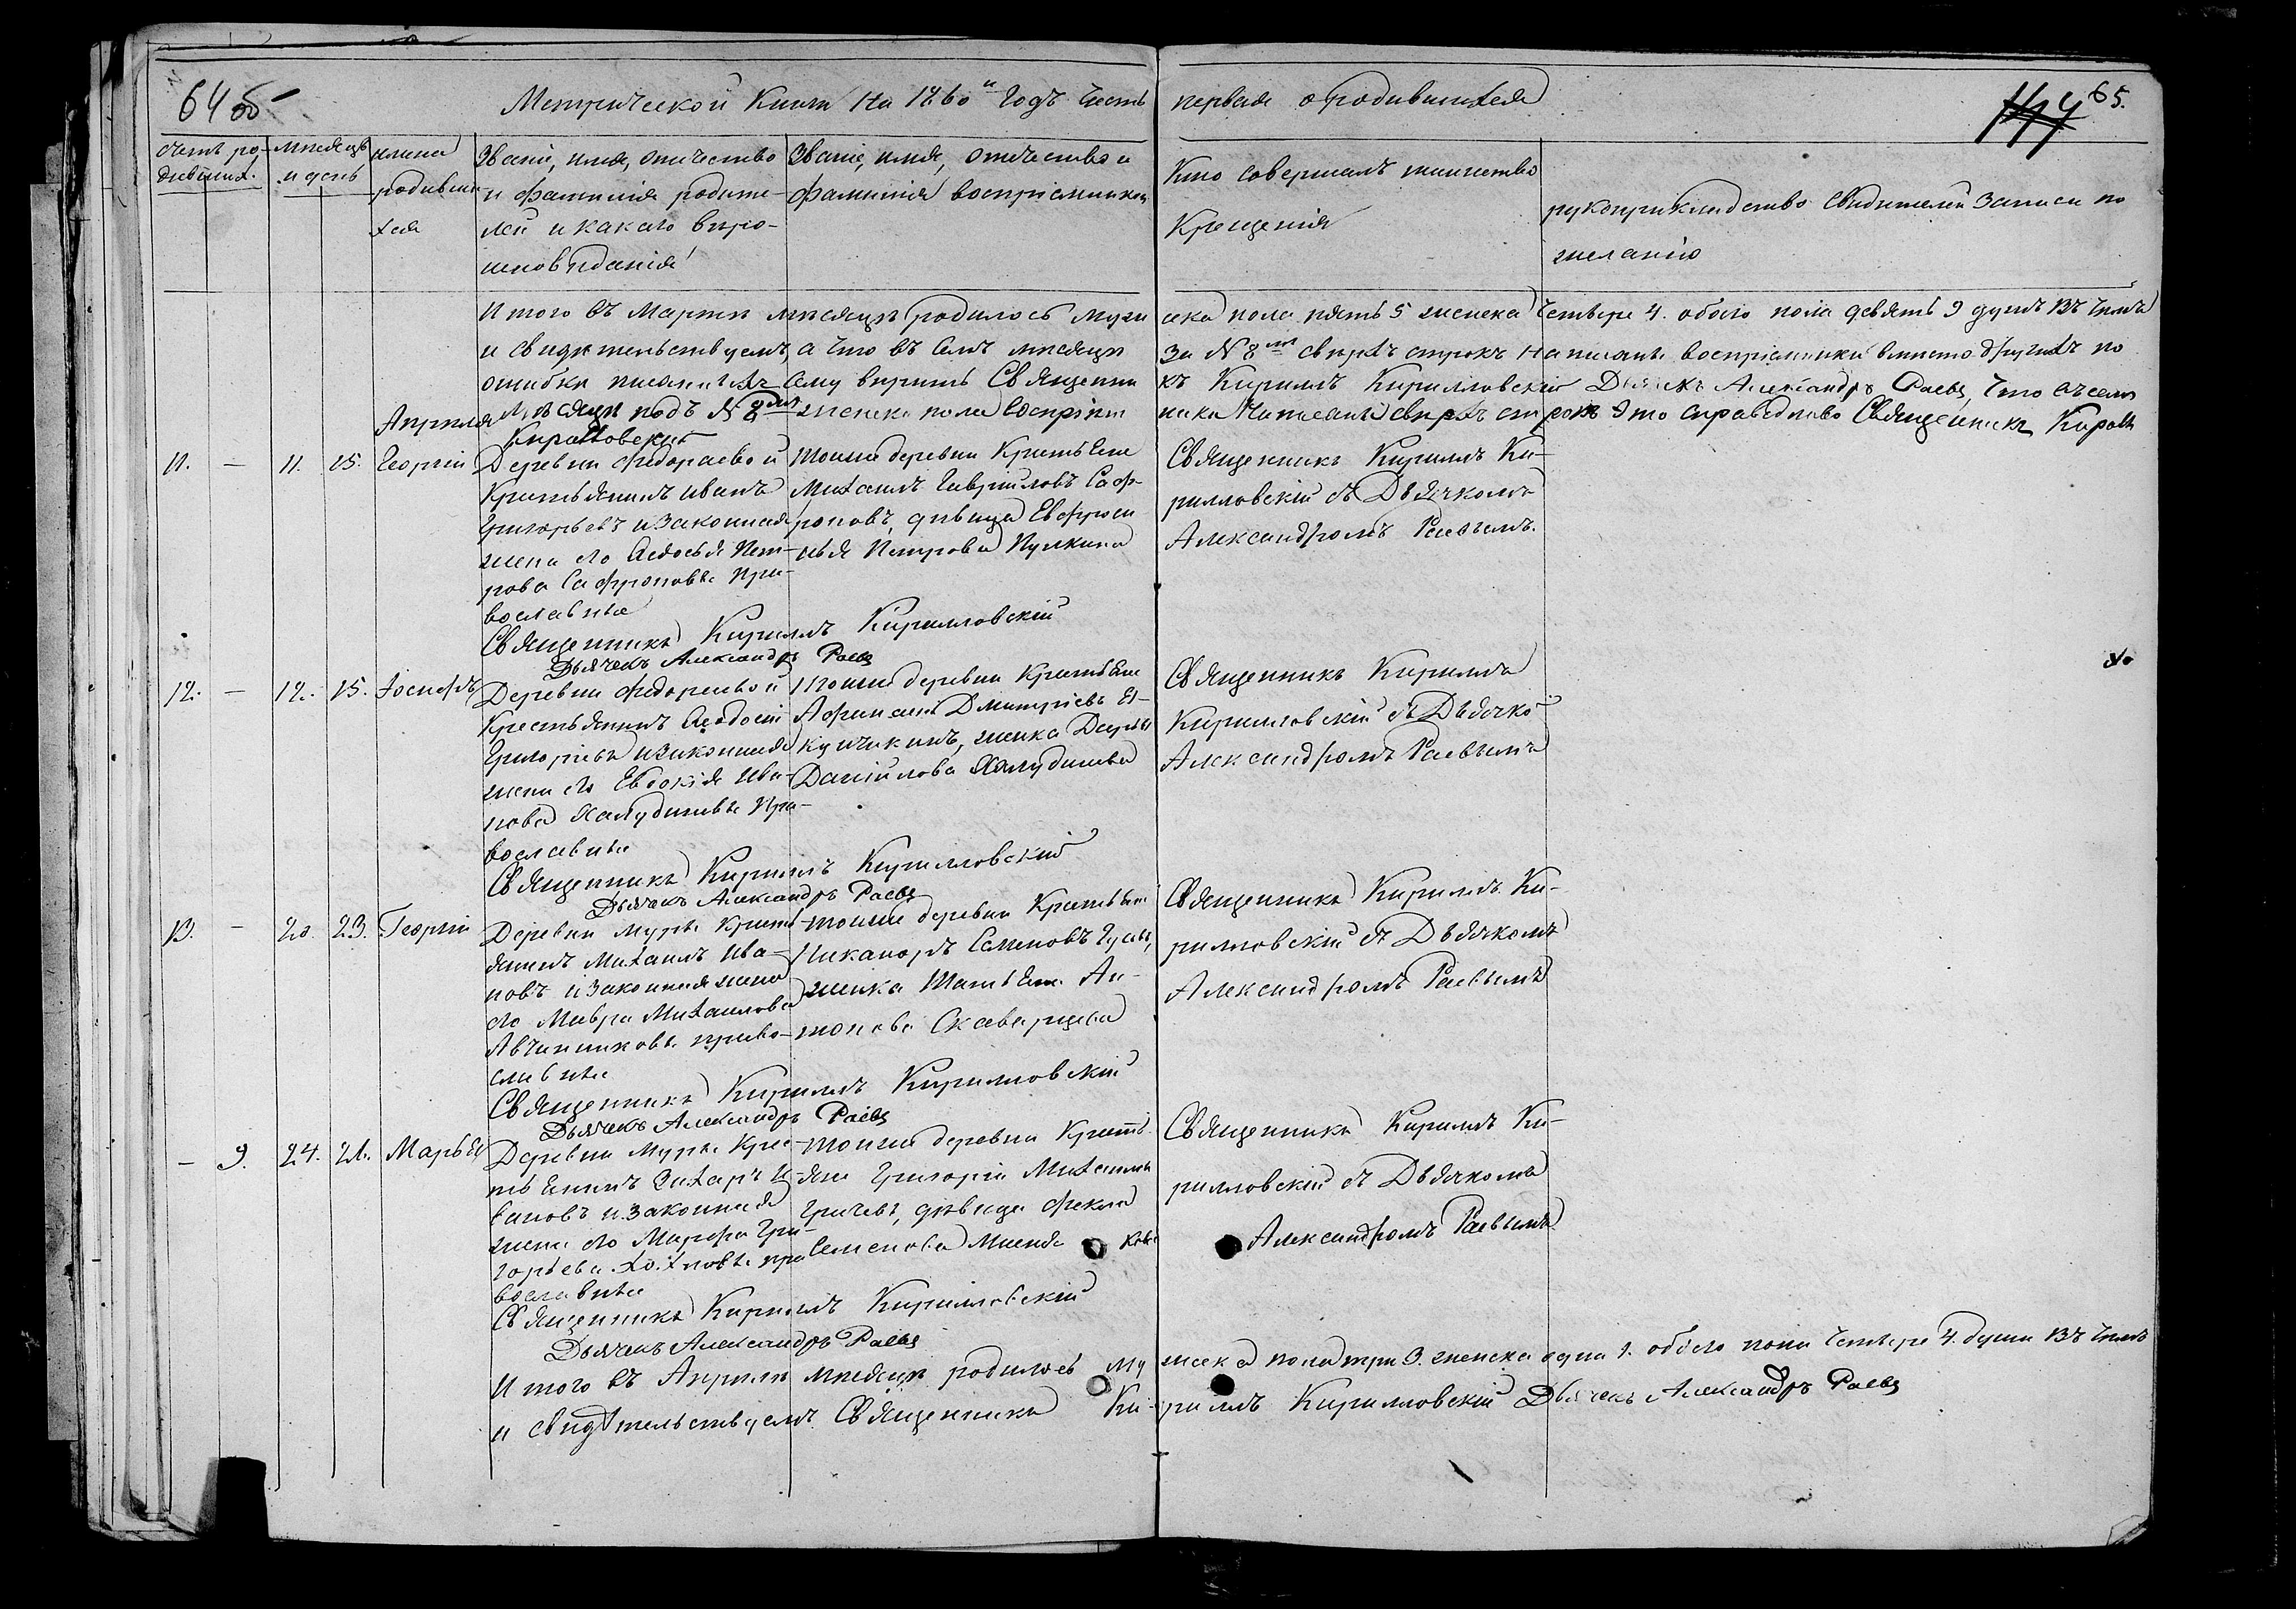 64 об
Метрической Книги На 1860й Годъ Часть первая о родившихся
65.
счетъ ро-
дившихъ.
мѣсяцъ
и день
имена
родивши
хся
Званіе, имя, отчество
и фамилія родите-
лей и какаго вѣро-
исповѣданія
Званіе, имя, отчество и
фамилія воспріемников
Кто совершалъ таинство
Крещенія
рукоприкладство свидѣтелей записи по
желанію
Итого въ Мартѣ мѣсяцѣ родилось муже
ска пола пять 5 женска четыре 4. обоего пола девять 9 душъ Въ чемъ
и свидѣтельствуемъ, а что въ семъ мѣсяцѣ
за № 8мъ сверхъ строкъ написаны воспріемники вмѣсто другихъ по
ошибки писанныхъ сему вѣримъ Священни
къ Кириллъ Кирилловскій Дьячекъ Александръ Раевъ, что въ семъ
Апрѣля
мѣсяцѣ подъ № 8мъ женска пола воспріем
ника написаны сверхъ строкъ это справедливо Священникъ Кириллъ
Кирилловскій
11. — 11. 15. Георгій
Деревни Федораевой
Крестьянинъ Иванъ
Григорьевъ и законная
жена его Ѳедосья Пет-
рова Сафроновы пра-
вославные
тоиже деревни Крестьяне
Михаилъ Гавріиловъ Саф-
роновъ, дѣвица Евфроси
нья Петрова Пулкина
Священникъ Кириллъ Ки-
рилловскій съ Дьячкомъ
Александромъ Раевымъ.
Священникъ Кириллъ Кирилловскій
Дьячекъ Александръ Раевъ
12. — 12. 15. Іосифъ
Деревни Федораевой
Крестьянинъ Ѳеодосій
Григорьевъ и законная
жена его Евдокія Ива-
нова Халудишевы Пра-
вославные
Тоиже деревни Крестьяне
Афанасій Дмитріевъ
женка Дарья
Даніилова Халудишева
Священникъ Кириллъ
Кирилловскій съ Дьячко
Александромъ Раевымъ
Священникъ Кириллъ Кирилловскій
Дьячекъ Александръ Раевъ
13. — 20. 23. Георгій
Деревни Муры Кресть
янинъ Михаилъ Ива-
новъ и законная жена
его Мавра Михаилова
Авчинниковы право-
славные
тоиже деревни Крестьяне
Никаноръ Семеновъ Гусевъ,
женка Татьяна Ан-
тонова Скаварцева
Священникъ Кириллъ Ки-
рилловскій съ Дьячкомъ
Александромъ Раевымъ
Священникъ Кириллъ Кирилловскій
Дьячекъ Александръ Раевъ
— 9. 24. 26. Марья
Деревни Муры Крес-
тьянинъ Захаръ И
вановъ и законная
жена его Марфа Гри-
горьева пра
вославные
тоиже деревни Кресть-
яне Григорій Михаиловъ
Грачевъ, дѣвица Фекла
Семенова
Священникъ Кириллъ Ки-
рилловскій съ Дьячкомъ
Александромъ Раевымъ
Священникъ Кириллъ Кирилловскій
Дьячекъ Александръ Раевъ
Итого въ Апрѣлѣ мѣсяцѣ родилось му
жеска пола три 3. женска одна 1. обоего пола четыре 4. души Въ чемъ
и свидѣтельствуемъ Священникъ Ки-
риллъ Кирилловскій Дьячекъ Александръ Раевъ